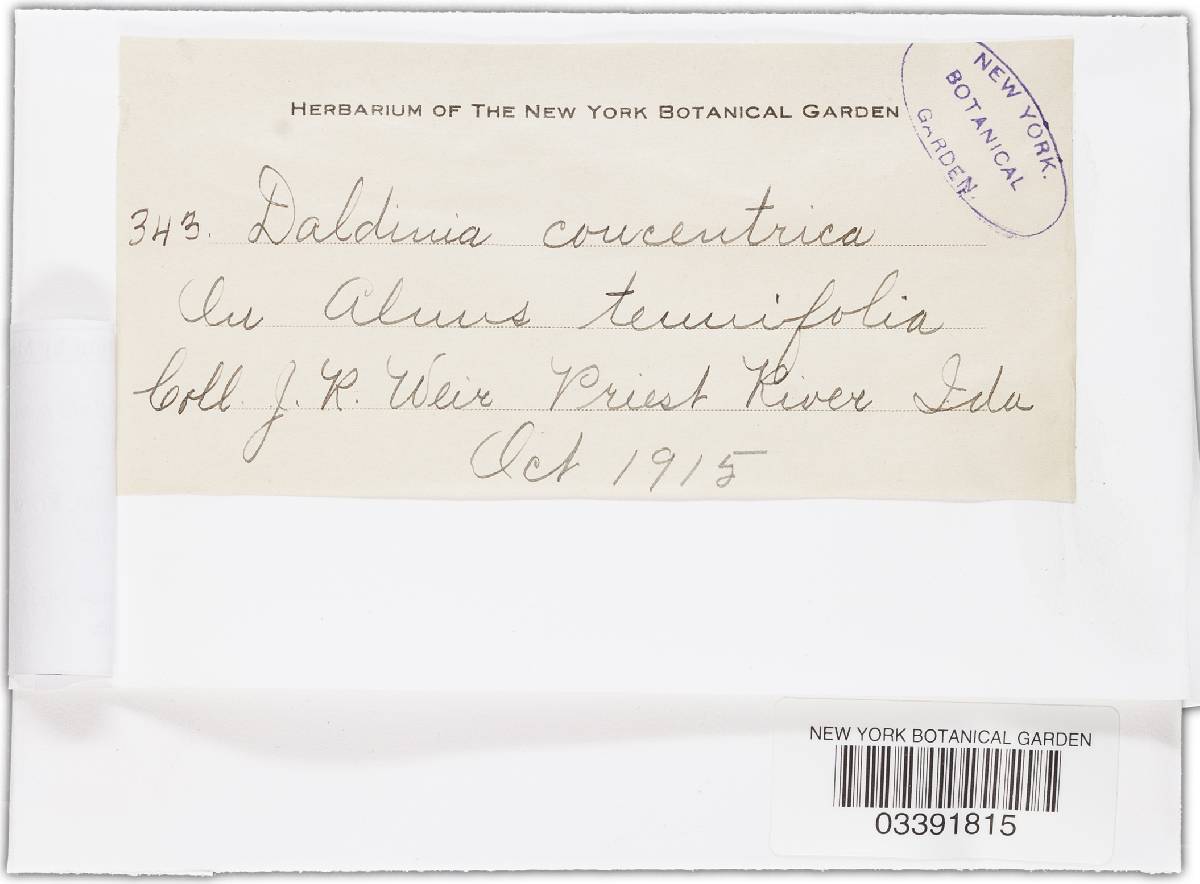 HERBARIUM OF THE NEW YORK BOTANICAL GARDEN
NEW YORK.
BOTANICAL
GARDEN.
343. Daldinia concentrica
On Alnus tenuifolia
Coll. J. R. Weir Priest River Ida
Oct 1915
NEW YORK BOTANICAL GARDEN
03391815